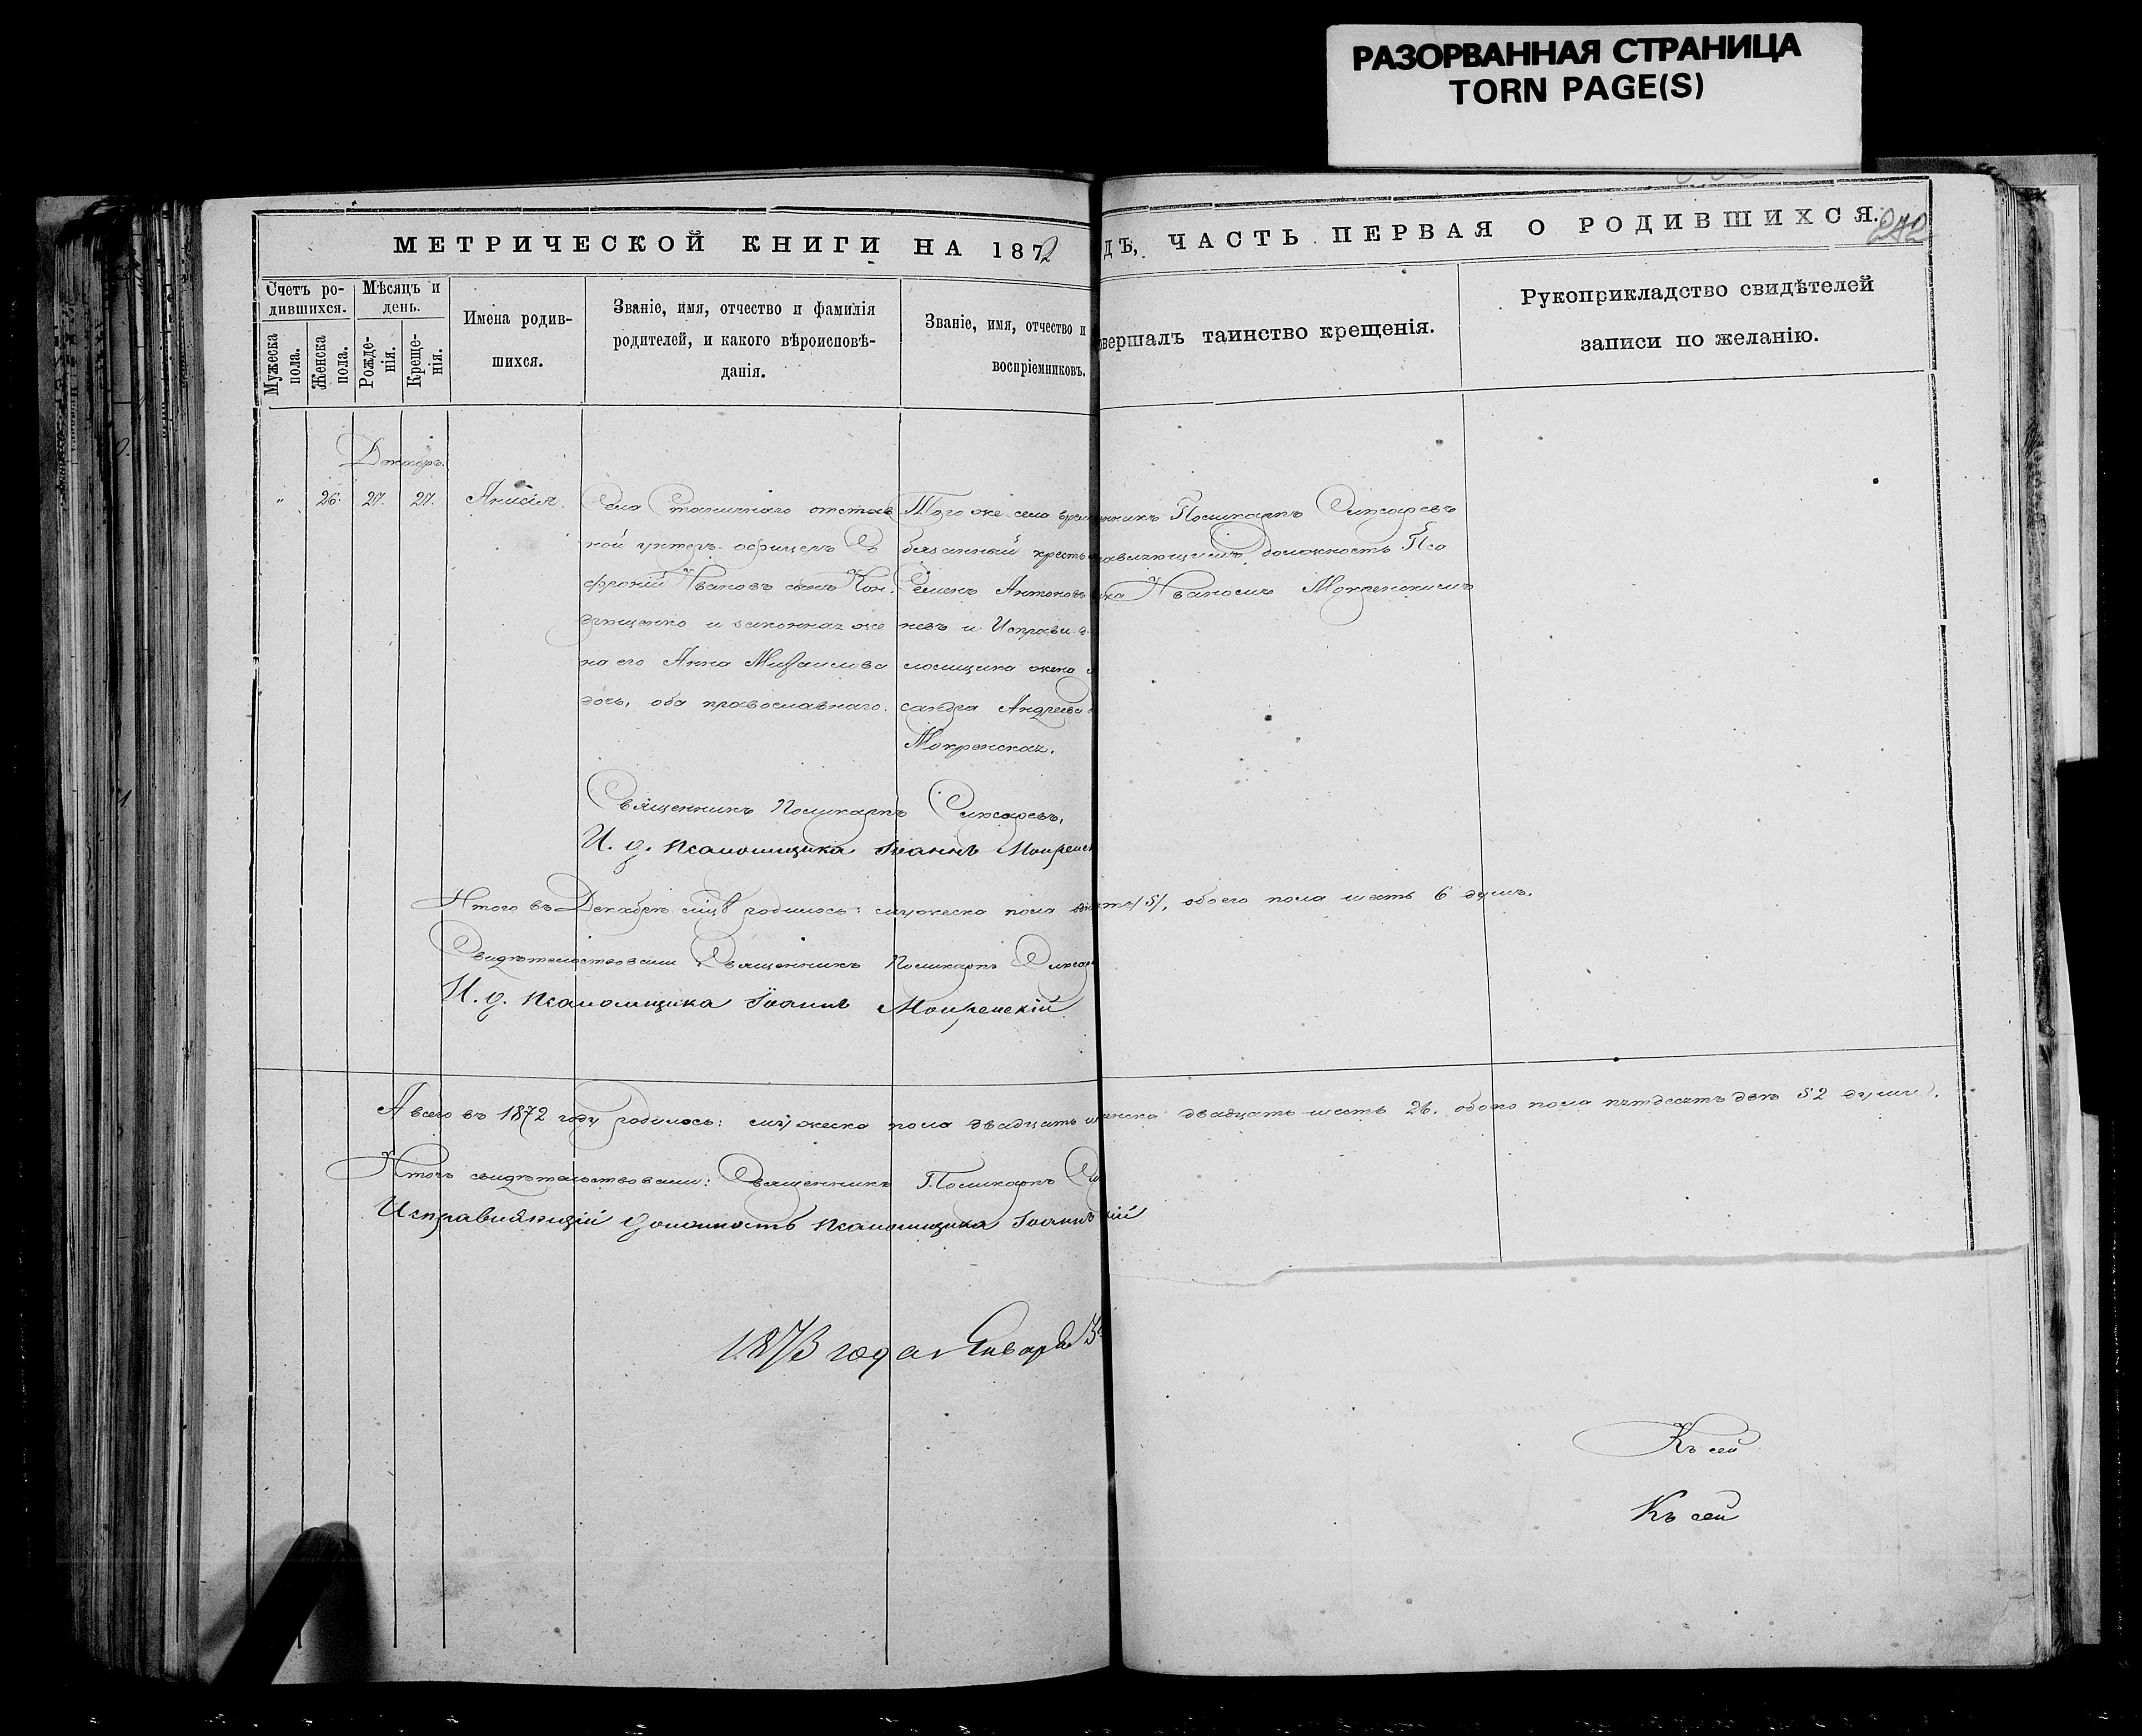 РАЗОРВАННАЯ СТРАНИЦА
TORN PAGE(S)
МЕТРИЧЕСКОЙ КНИГИ НА 1872
ДѢ, ЧАСТЬ ПЕРВАЯ О РОДИВШИХСЯ.
Счетъ ро-
дившихся.
Мужеска
пола.
Женска
пола.
Мѣсяцъ и
день.
Рожде-
нія.
Креще-
нія.
Имена родив-
шихся.
Званіе, имя, отчество и фамилія
родителей, и какого вѣроисповѣ-
данія.
Званіе, имя, отчество и
воспріемниковъ.
овершалъ таинство крещенія.
Рукоприкладство свидѣтелей
записи по желанію.
Декабрь.
" 26. 27. 27. Анисія.
Села отстав
ной унтеръ-офицеръ Со
фроній Ивановъ сынъ Кон-
и законная же
на его Анна Михаилова
дочь, оба православнаго.
Того же села врем
бязанный кресть
Семенъ Антоновъ
и Исправ. д.
ломщика жена
сандра Андреева
Мокренская.
нникъ Поликарпъ
равляющимъ должность Пса
Иваномъ Мокренскимъ
Священникъ Поликарпъ
И. д. псаломщика Іоаннъ Мокренск
Итого въ Декабрѣ м͠цѣ родилось: мужеска пола /5/, обоего пола шесть 6 душъ.
Свидѣтельствовали Священникъ Поликарпъ
И. д. псаломщика Іоаннъ Мокренскій
А всего въ 1872 году родилось: мужеска пола двадцать женска двадцать шесть 26. обоего пола пятдесятъ двѣ 52 души.
Итогъ свидѣтельствовали: Священникъ Поликарпъ
Исправляющій должность псаломщика Іоаннъ кій
1873 года Января 3
Къ сей
Къ сей